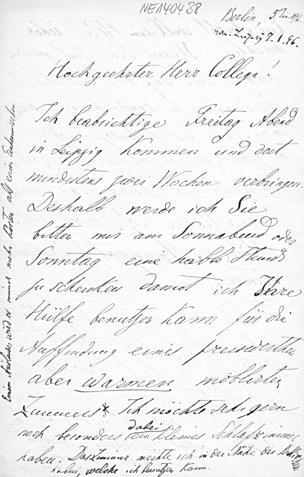 NE140438
Berlin, 5
Leipzig 7.1.96.
Hochgeehrter Herr College!
Ich beabsichtige Freitag Abend
in Leipzig kommen und dort
mindestens zwei Wochen verbringen.
Deshalb werde ich Sie
bitten mir am Sonnabend oder
Sonntag eine halbe Stunde
zu schenken damit ich Ihre
Hülfe benutzen kann für die
Auffindung eines preiswerthen
aber warmen möblirten
Zimmers* Ich möchte gern
noch besonders dabei ein kleines Schlafzimmer
haben. Das Zimmer möchte ich in der Nähe des
haben, welche ich benutzen kann.
Einen wird es nicht mehr kosten als einen